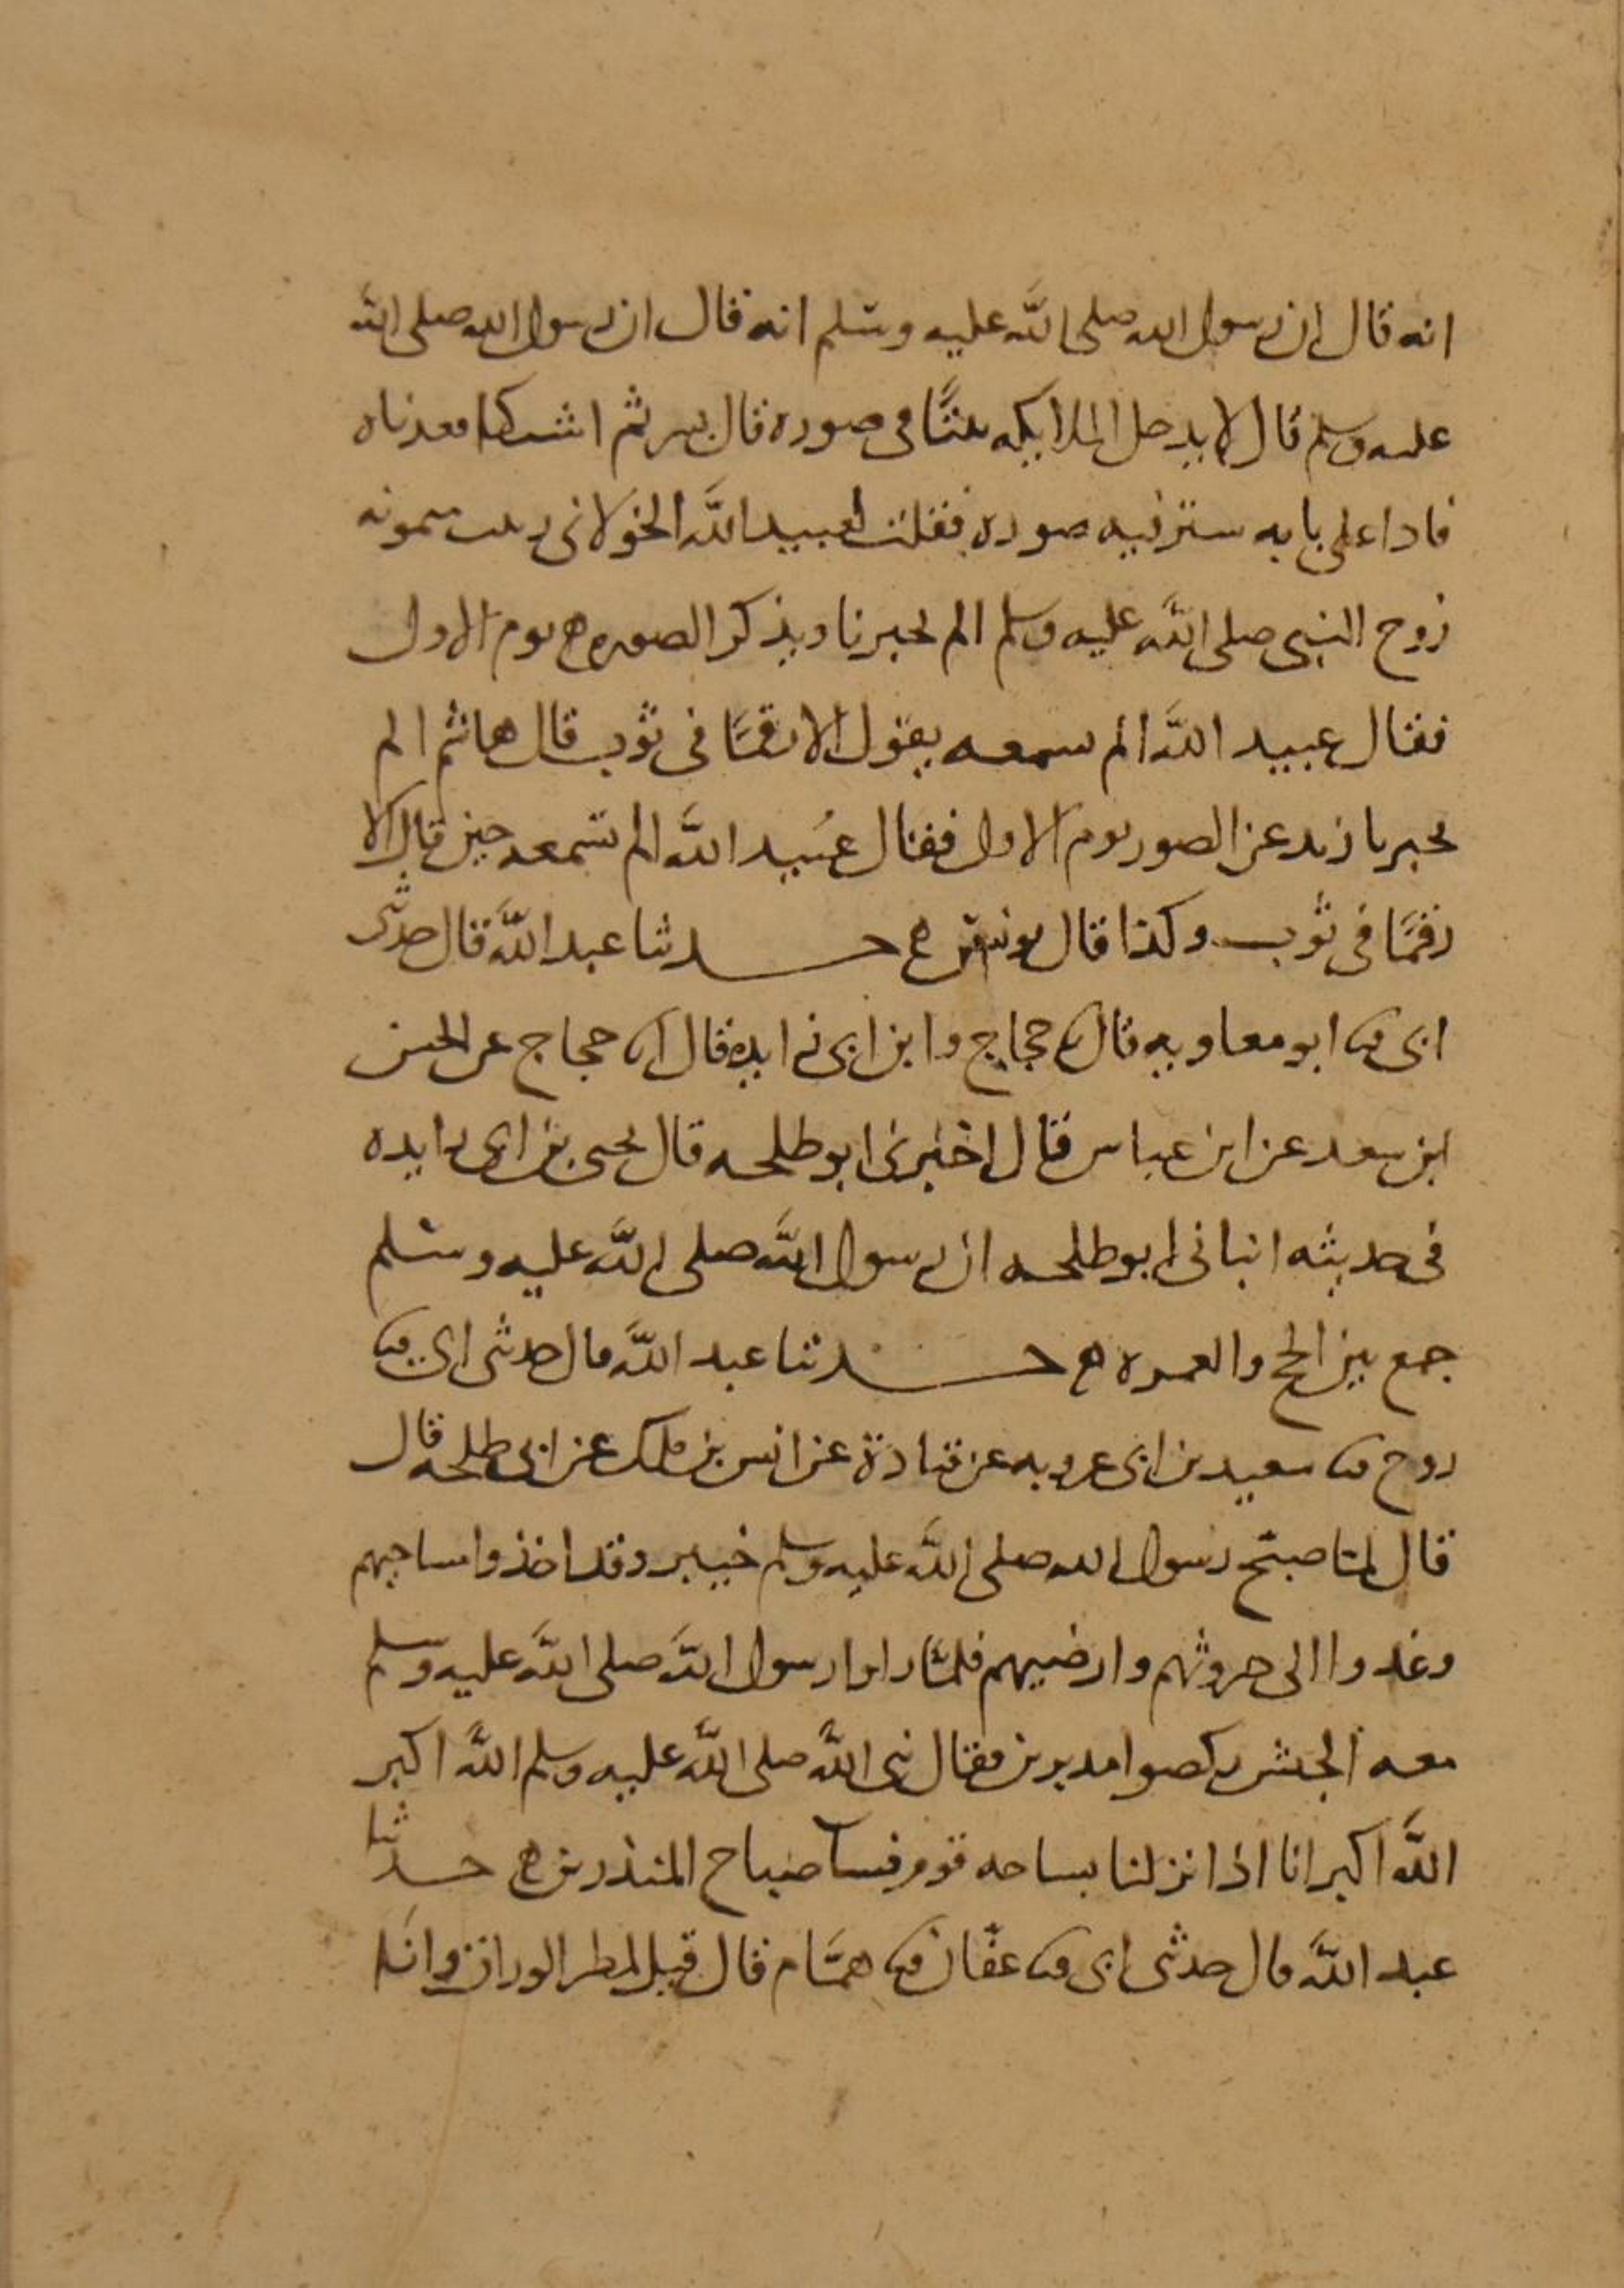 انه قال ان رسول الله صلى الله عليه وسلم انه قال ان رسول الله صلى الله
عليه وسلم قال لا يدخل الملايكه بيتا فى صوره قال بسر ثم اشتكا فعدناه
فاذا على بابه ستر فيه صوره فقلت لعبيد الله الخولانى ربيب ميمونه
زوج النبى صلى الله عليه وسلم الم يخبرنا ويذكر الصوره يوم الاول
فقال عبيد الله الم تسمعه يقول الا رقما فى ثوب قال هاشم الم
يخبرنا زيد عن الصور يوم الاول فقال عبيد الله الم تسمعه حين قال الا
رقما فى ثوب وكذا قال يونس حدثنا عبد الله قال حدثنى
ابى ثنا ابو معاويه قال ثنا حجاج وابن ابى زايده قال انا حجاج عن الحسن
ابن سعد عن ابن عباس قال اخبرنى ابو طلحه قال يحيى بن ابى زايده
فى حديثه انبانى ابو طلحه ان رسول الله صلى الله عليه وسلم
جمع بين الحج والعمره حدثنا عبد الله قال حدثنى ابى ثنا
روح ثنا سعيد بن ابى عروبه عن قتادة عن انس بن ملك عن ابى طلحه قال
قال لما صبح رسول الله صلى الله عليه وسلم خيبر وقد اخذوا مساحيهم
وغدوا الى حروثهم وارضيهم فلما راوا رسول الله صلى الله عليه وسلم
معه الجيش ركضوا مدبرين فقال نبى الله صلى الله عليه وسلم الله اكبر
الله اكبر انا اذا نزلنا بساحه قوم فسآ صباح المنذرين حدثنا
عبد الله قال حدثنى ابى ثنا عفان ثنا همام قال قيل لمطر الوراق وانا